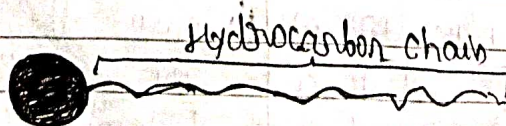 Hydrocarbon chain